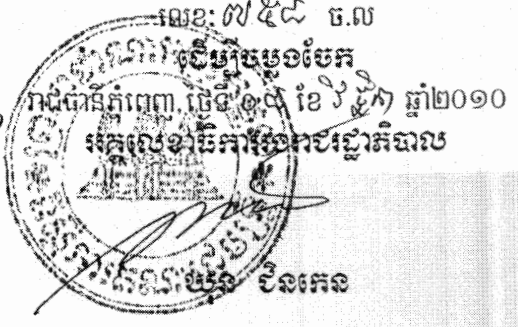 លេខ: ៧៥៨ ច.ល
ដើម្បីចម្លងចែក
រាជធានីភ្នំពេញ, ថ្ងៃទី ០៨ ខែ វិច្ឆិកា ឆ្នាំ២០១០
អគ្គលេខាធិការរងរាជរដ្ឋាភិបាល
ឃុន ជិនកេន